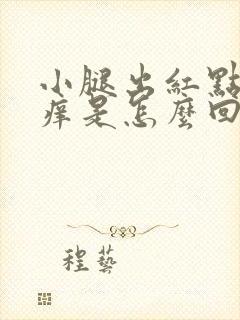 小腿出紅點
痒是怎麼回
程藝